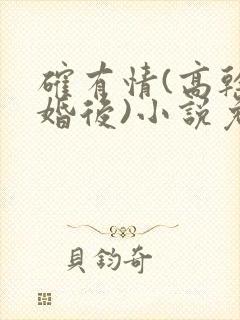 確有情(高幹
婚後)小說
貝鈞奇